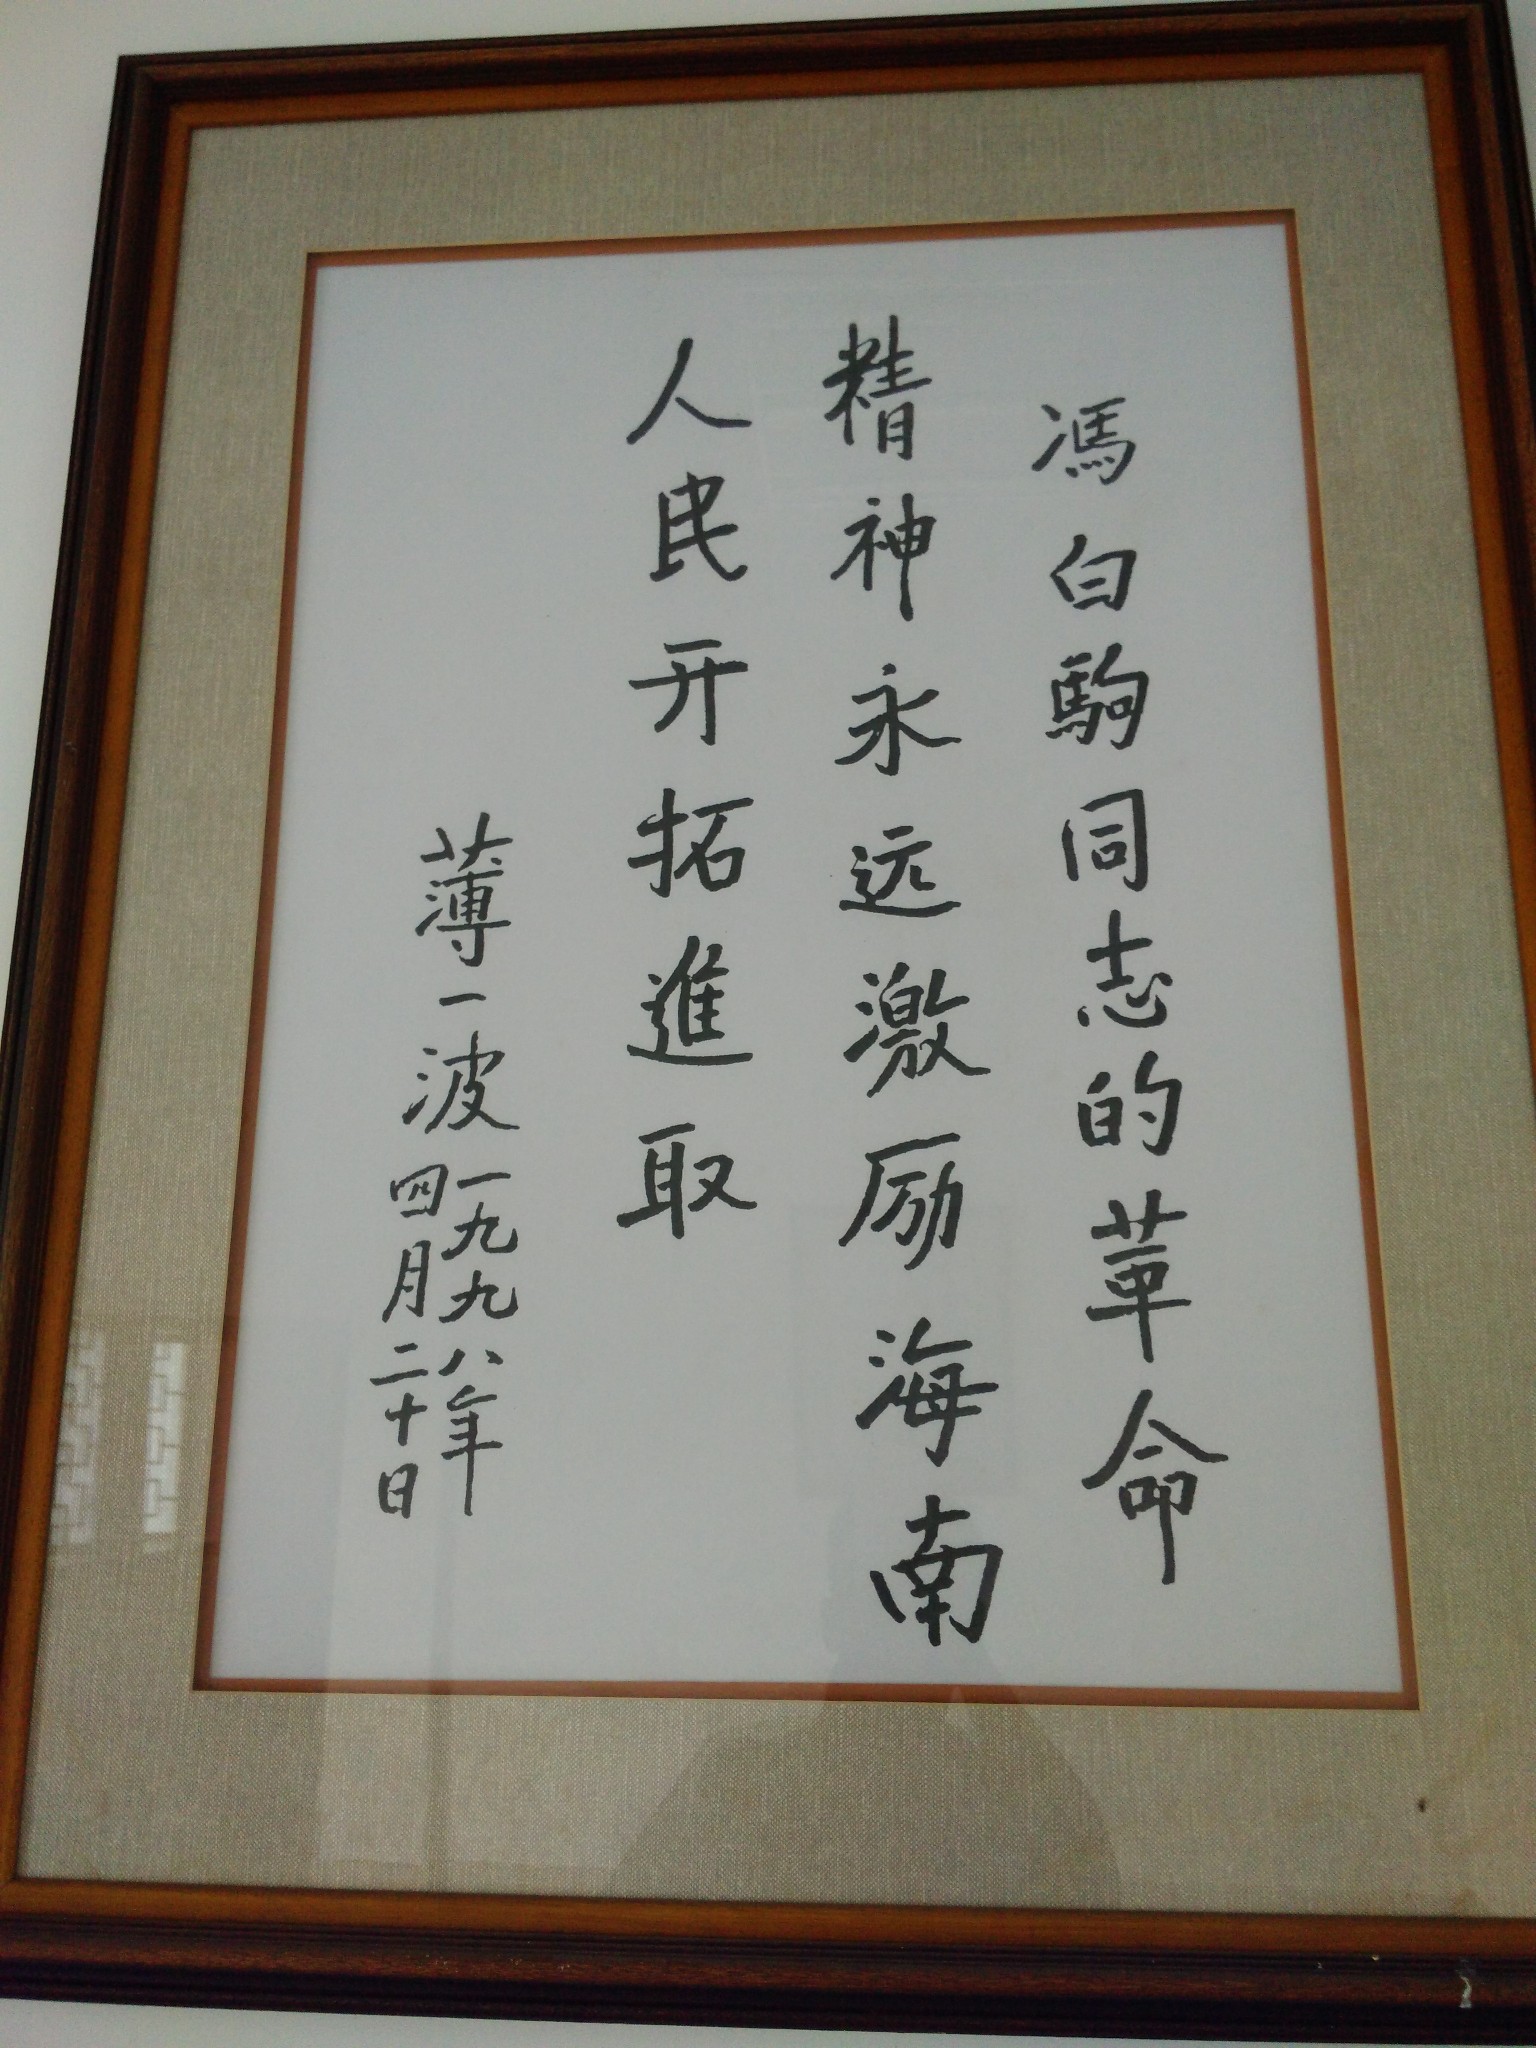 馮白駒同志的革命
精神永远激励海南
人民开拓進取
薄一波一九九八年
四月二十日